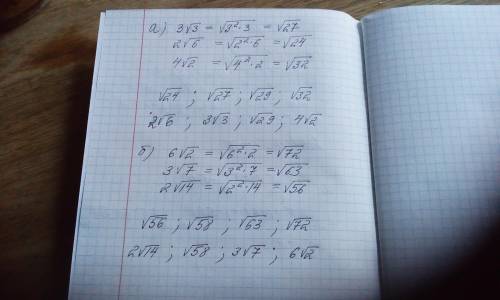 а) 3√3 = √3²·3 = √27
2√6 = √2²·6 = √24
4√2 = √4²·2 = √32
√24 ; √27 ; √29 ; √32
2√6 ; 3√3 ; √29 ; 4√2
б) 6√2 = √6²·2 = √72
3√7 = √3²·7 = √63
2√14 = √2²·14 = √56
√56 ; √58 ; √63 ; √72
2√14 ; √58 ; 3√7 ; 6√2